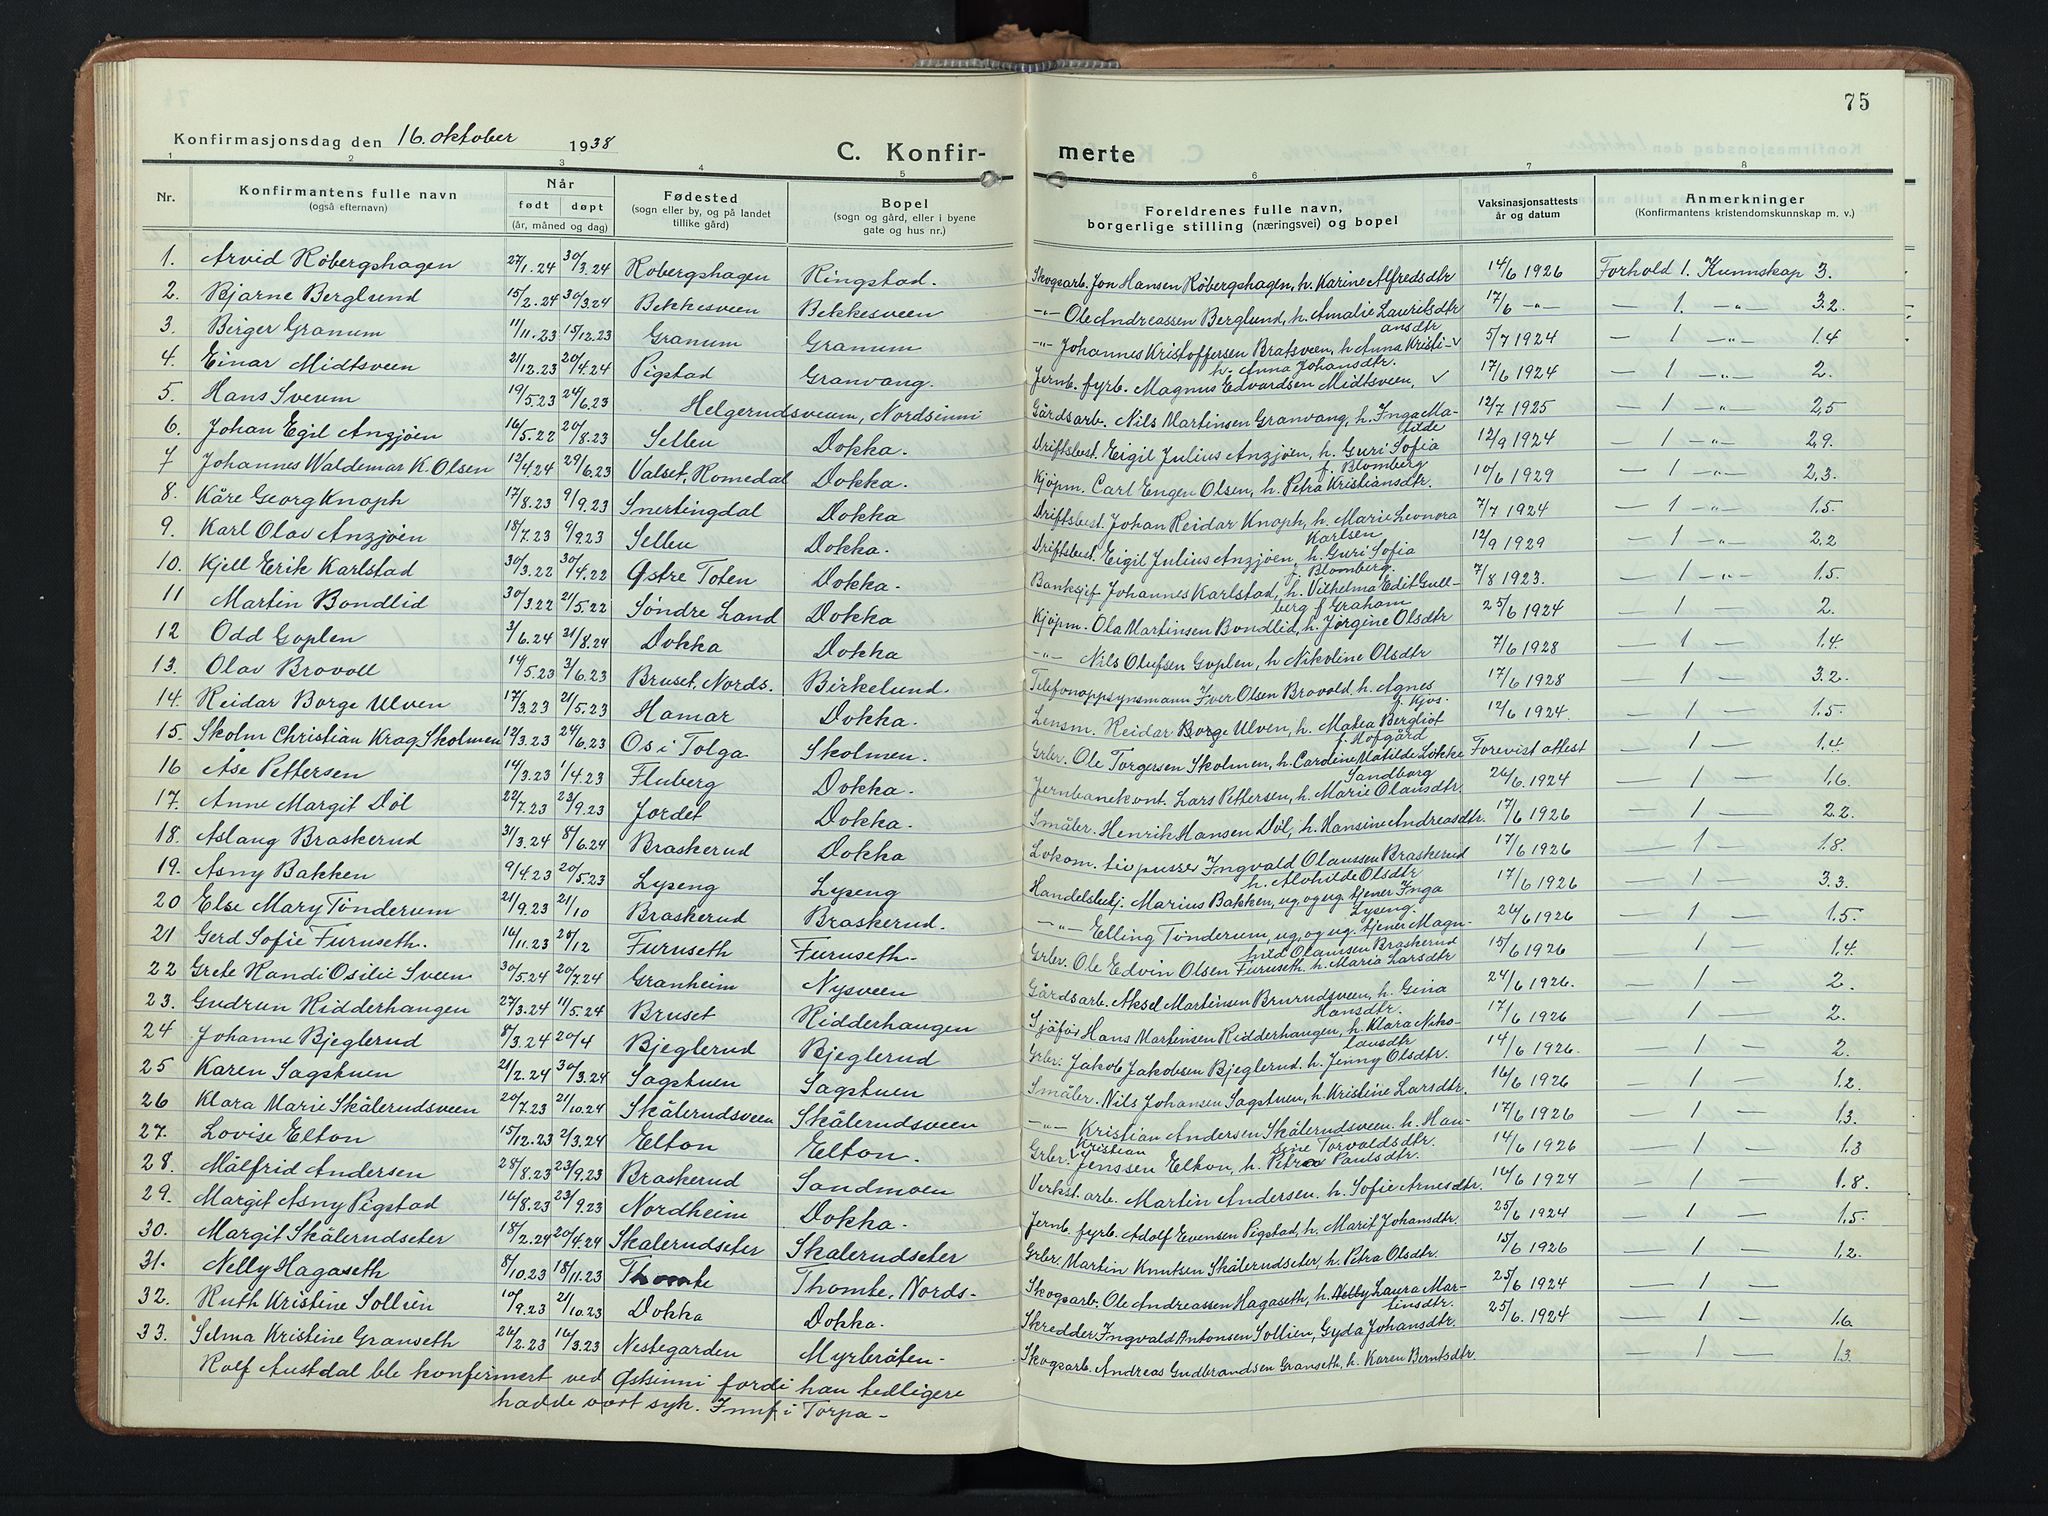 75
Konfirmasjonsdag den 16. oktober 1938
C. Konfir- merte
1 2 3 4 5 6 7 8
Nr. Konfirmantens fulle navn (også efternavn) Når født døpt (år, måned og dag) Fødested (sogn eller by, og på landet tillike gård) Bopel (sogn og gård, eller i byene gate og hus nr.) Foreldrenes fulle navn, borgerlige stilling (næringsvei) og bopel Vaksinasjonsattests år og datum Anmerkninger (Konfirmantens kristendomskunnskap m. v.)
1. Arvid Røbergshagen 27/1.24 30/3.24 Robergshagen Ringstad. Skogsarb. Jon Hansen Røbergshagen, h. Karine Alfredsdtr 14/6 1926 Forhold 1. Kunnskap 3.
2. Bjarne Berglund 15/2.24 30/3.24 Bekkesveen Bekkesveen -"- Ole Andreassen Berglund, h. Amalie Lauritsdtr 17/6 -"- — 1. -"- 3.2.
3. Birger Granum 11/11.23 15/12.23 Granum Granum -"- Johannes Kristoffersen Bratsveen, h Anna Kristiansdtr 5/7 1924 — 1 -"- 1.4
4. Einar Midtsveen 21/12.23 20/4.24 Pigstad Granvang. Jernb. fyrb. Magnus Edvardsen Midtsveen, h. Anna Johansdtr. 17/6 1924 — 1 -"- 2.
5. Hans Sveum 19/5.23 24/6.23 Helgerudsveum, Nordsinni Gårdsarb. Nils Martinsen Granvang, h. Inga Matilde 12/7 1925 — 1 -"- 2,5
6. Johan Egil Anzjøen 16/5.22 20/8.23 Sellen Dokka. Driftsbest. Eigil Julius Anzjøen, h. Guri Sofia f. Blomberg 12/9 1924 — 1 -"- 2,9.
7 Johannes Waldemar K. Olsen 12/4.24 29/6.23 Valset, Romedal Dokka. Kjøpm. Carl Engen Olsen, h. Petra Kristiansdtr. 10/6 1929 — 1 -"- 2,3.
8. Kåre Georg Knoph 17/8.23 9/9.23 Snertingdal Dokka Driftsbest. Johan Reidar Knoph, h. Marie Leonora Karlsen 7/7 1924 — 1 -"- 1.5.
9. Karl Olav Anzjøen 18/7.23 9/9.23 Sellen Dokka. Driftsbest. Eigil Julius Anzjøen, h. Guri Sofia f. Blomberg. 12/9 1929 — 1 -"- 2.2
10. Kjell Erik Karlstad 30/3.22 30/4.22 Østre Toten Dokka. Banksjef Johannes Karlstad, h. Vilhelma Edit Gullberg f Graham 7/8 1923. — 1 -"- 1.5.
11 Martin Bondlid 30/3.22 21/5.22 Søndre Land Dokka Kjøpm. Ola Martinsen Bondlid, h. Jørgine Olsdtr 25/6 1924 — 1 — 2.
12 Odd Goplen 3/6.24 31/8.24 Dokka Dokka -"- Nils Olufsen Goplen, h Nikoline Olsdtr 7/6 1928 — 1 — 1.4.
13. Olav Brovoll 14/5.23 3/6.23 Bruset, Nords. Birkelund. Telefonoppsynsmann Iver Olsen Brovold, h. Agnes f. Kjos. 17/6 1928 — 1 — 3.2.
14. Reidar Borge Ulven 17/3.23 21/5.23 Hamar Dokka. Lensm. Reidar Borge Ulven, h. Matea Bergliot f. Hofgård 12/6 1924. — 1 — 1.5.
15. Skolm Christian Krag Skolmen 12/3.23 24/6.23 Os i Tolga Skolmen. Grbr. Ole Torgersen Skolmen, h. Caroline Matilde Løkke Sandborg Forevist attest — 1 — 1.4
16 Åse Pettersen 14/3.23 1/4.23 Fluberg Dokka. Jernbanekont. Lars Pettersen, h. Marie Olausdtr. 26/6 1924 — 1 — 1.6.
17. Anne Margit Døl 22/7.23 23/9.23 Jordet Dokka. Småbr. Henrik Hansen Døl, h. Hansine Andreasdtr. 17/6 1926 — 1 — 2.2.
18. Aslaug Braskerud 31/3.24 8/6.24 Braskerud Dokka Lokom. Ingvald Olaussen Braskerud h. Alvhilde Olsdtr 17/6 1926 — 1 — 1.8.
19. Asny Bakken 9/4.23 20/5.23 Lyseng Lyseng Handelsbetj. Marius Bakken, ug, og ug. tjener Inga Lyseng. 17/6 1926 — 1 — 3.3.
20 Else Mary Tønderum 21/9.23 21/10 Braskerud Braskerud. -"- Elling Tønderum, ug, og ug. tjener Magnhild Olaussen Braskerud 26/6 1926 — 1 — 1.5.
21 Gerd Sofie Furuseth. 16/11.23 26/12 Furuseth Furuseth. Grbr. Ole Edvin Olsen Furuseth. h. Maria Larsdtr 15/6 1926 — 1 — 1.4.
22 Grete Randi Osilie Sveen 30/5.24 20/7.24 Granheim Nysveen Gårdsarb. Aksel Martinsen Brurudsveen, h. Gina Hansdtr. 24/6 1926. — 1 — 2.
23. Gudrun Ridderhaugen 27/3.24 11/5.24 Bruset Ridderhaugen Sjåfør Hans Martinsen Ridderhaugen, h. Klara Nikolausdtr 17/6 1926 — 1 — 2.
24 Johanne Bjeglerud 8/3.24 20/4 Bjeglerud Bjeglerud Grbr. Jakob Jakobsen Bjeglerud. h. Jenny Olsdtr. 14/6 1926. — 1 — 2.
25 Karen Sagstuen 21/2.24 30/3.24 Sagstuen Sagstuen Småbr. Nils Johansen Sagstuen, h. Kristine Larsdtr. 16/6 1926 — 1 — 1.2.
26 Klara Marie Skålerudsveen 20/7.23 21/10.24 Skålerudsveen Skålerudsveen -"- Kristian Andersen Skålerudsveen. h. Hansine Torvaldsdtr. 17/6 1926 — 1 — 1.3.
27. Lovise Elton 15/12.23 2/3.24 Elton Elton. Grbr. Kristian Jenssen Elton, h. Petra Paulsdtr. 14/6 1926 — 1 — 1.3
28. Målfrid Andersen 28/8.23 23/9.23 Braskerud Sandmoen Verkst. arb. Martin Andersen. h. Sofie Arnesdtr. 16/6 1924 — 1 — 1.8.
29. Margit Asny Pigstad 16/8.23 23/9.23 Nordheim Dokka. Jernb. fyrb. Adolf Evensen Pigstad, h. Marit Johansdtr. 25/6 1924 — 1 — 1.5.
30. Margit Skålerudseter 18/2.24 20/4.24 Skalerudseter Skalerudseter Grbr. Martin Knutsen Skålerudseter, h. Petra Olsdtr. 15/6 1926 — 1 — 1.2.
31. Nelly Hagaseth 8/10.23 18/11.23 Thomte Thomte, Nords- Skogsarb. Ole Andreassen Hagaseth, h. Laura Martinsdtr. 25/6 1924 — 1 —
32. Ruth Kristine Sollien 10/9.23 21/10.23 Dokka Dokka. Skredder Ingvald Antonsen Sollien, Gyda Johansdtr. 25/6. 1924 — 1 — 1.6.
33. Selma Kristine Granseth 26/2.23 16/3.23 Nestegarden Myrbråten. Skogsarb. Andreas Gudbrandsen Granseth, h. Karen Berntsdtr. — 1 — 1.3
Rolf Austdal ble konfirmert ved Østsinni fordi han tidligere
hadde vært syk. Innf i Torpa-